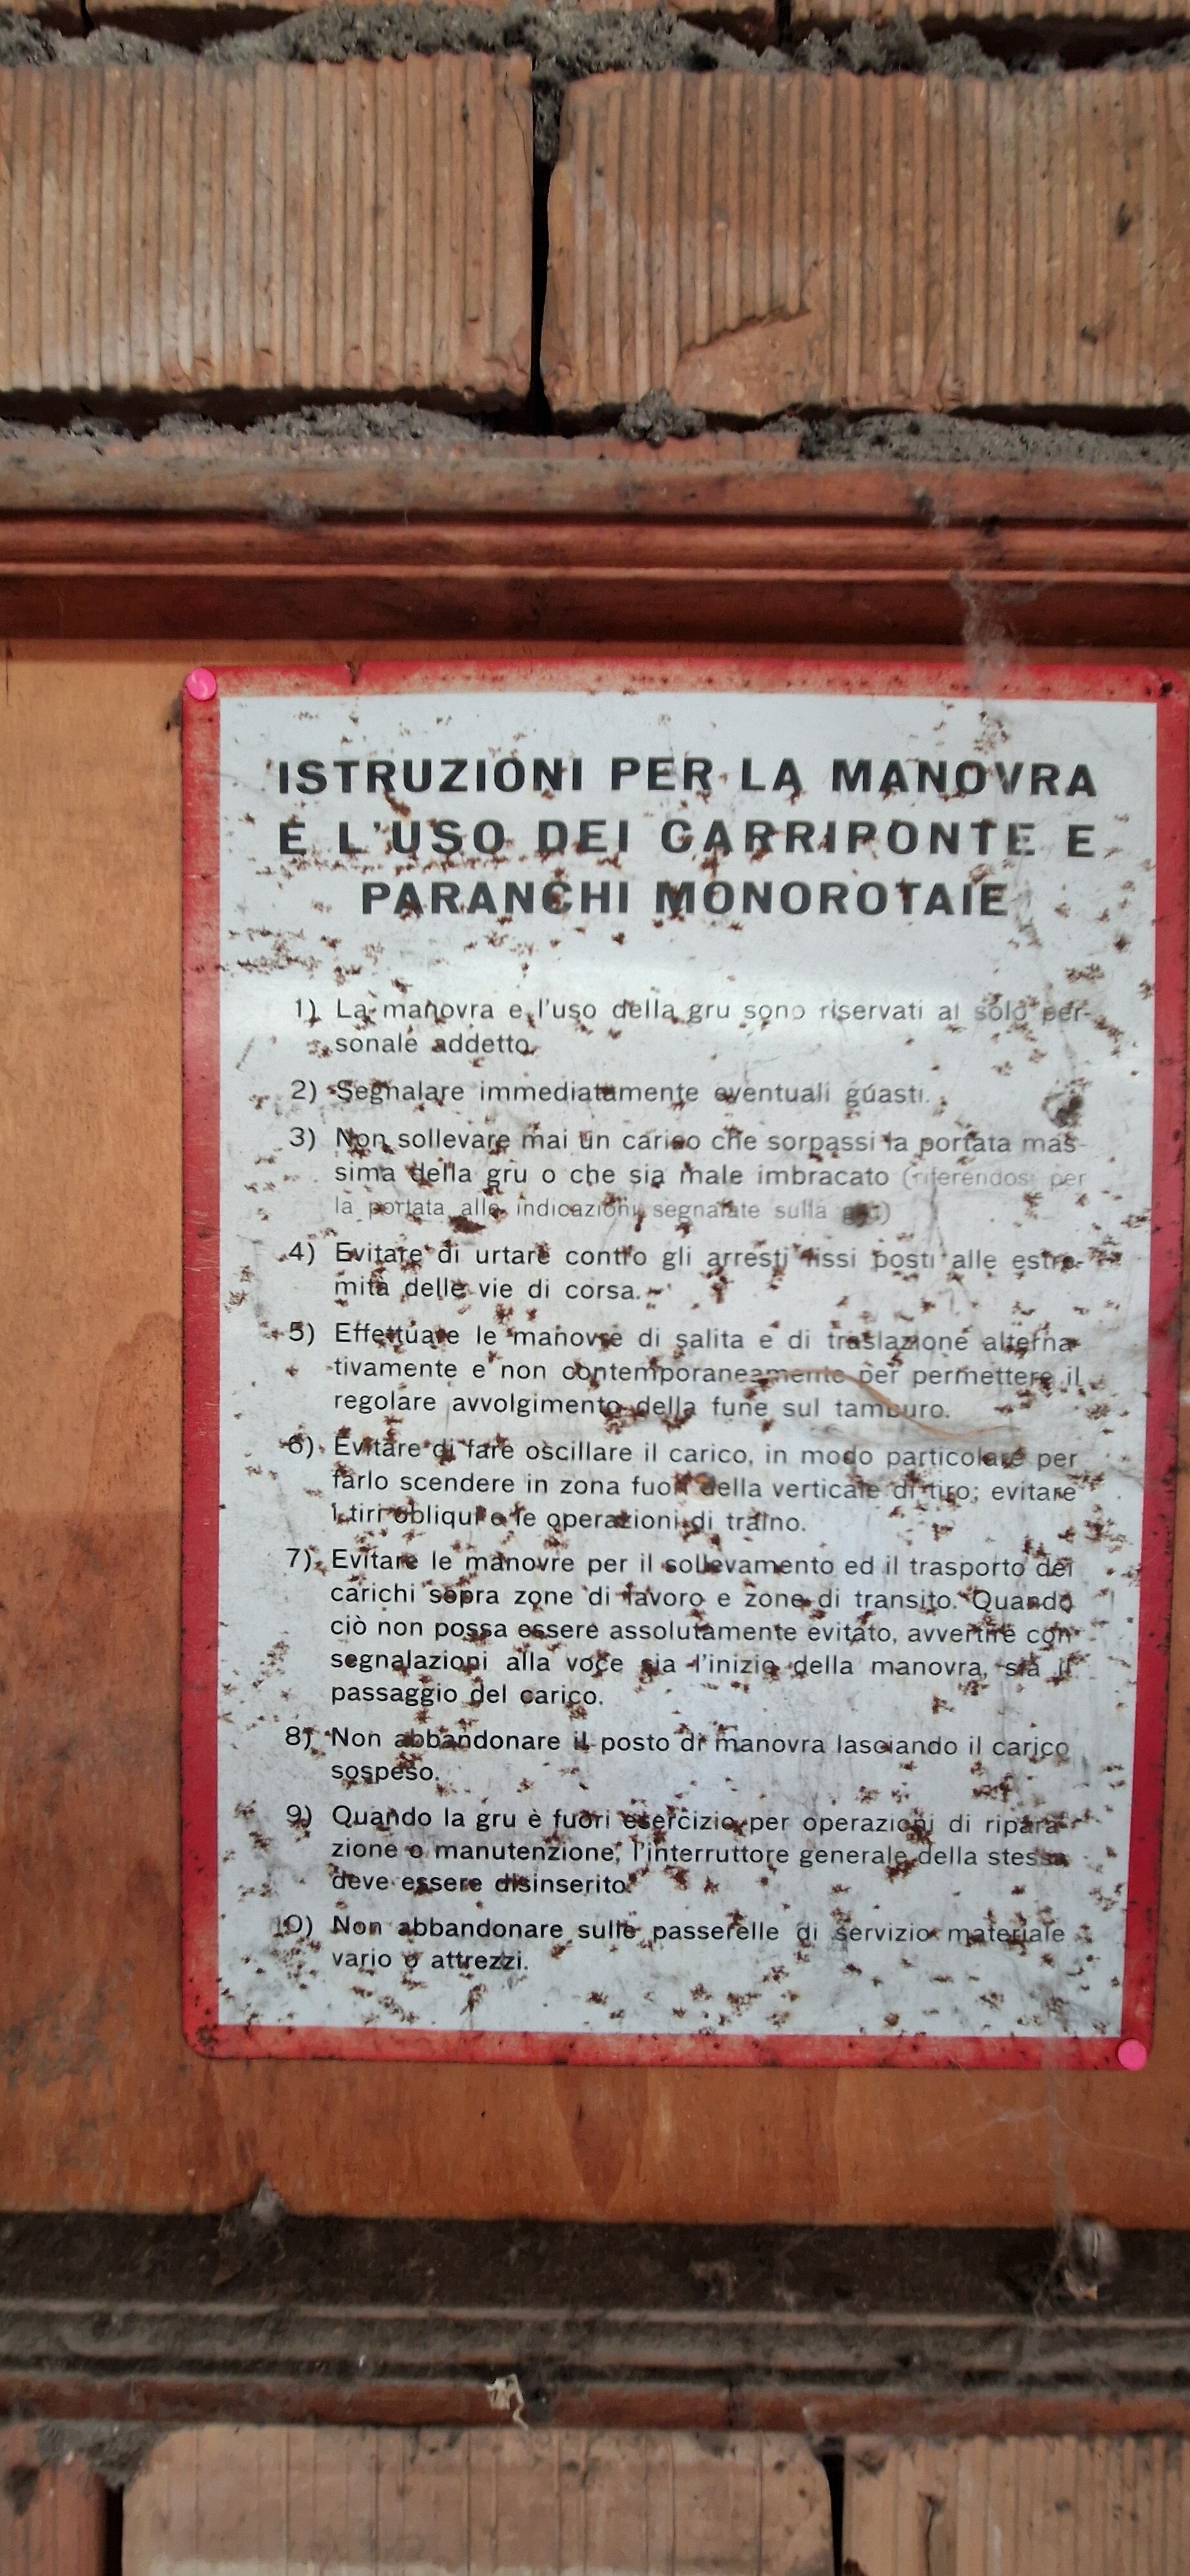 ISTRUZIONI PER LA MANOVRA
E L'USO DEI CARRIPONTE E
PARANCHI MONOROTAIE
1) La manovra e l'uso della gru sono riservati al solo per-
sonale addetto.
2) Segnalare immediatamente eventuali guasti.
3) Non sollevare mai un carico che sorpassi la portata mas-
sima della gru o che sia male imbracato (riferendosi per
la portata alle indicazioni segnalate sulla gru)
4) Evitare di urtare contro gli arresti fissi posti alle estre-
mità delle vie di corsa.
5) Effettuare le manovre di salita e di traslazione alterna-
tivamente e non contemporaneamente per permettere il
regolare avvolgimento della fune sul tamburo.
6) Evitare di fare oscillare il carico, in modo particolare per
farlo scendere in zona fuori della verticale di tiro; evitare
i tiri obliqui e le operazioni di traino.
7) Evitare le manovre per il sollevamento ed il trasporto dei
carichi sopra zone di lavoro e zone di transito. Quando
ciò non possa essere assolutamente evitato, avvertire con
segnalazioni alla voce sia l'inizio della manovra, sia il
passaggio del carico.
8) Non abbandonare il posto di manovra lasciando il carico
sospeso.
9) Quando la gru è fuori esercizio per operazioni di ripara-
zione o manutenzione, l'interruttore generale della stessa
deve essere disinserito.
10) Non abbandonare sulle passerelle di servizio materiale
vario o attrezzi.